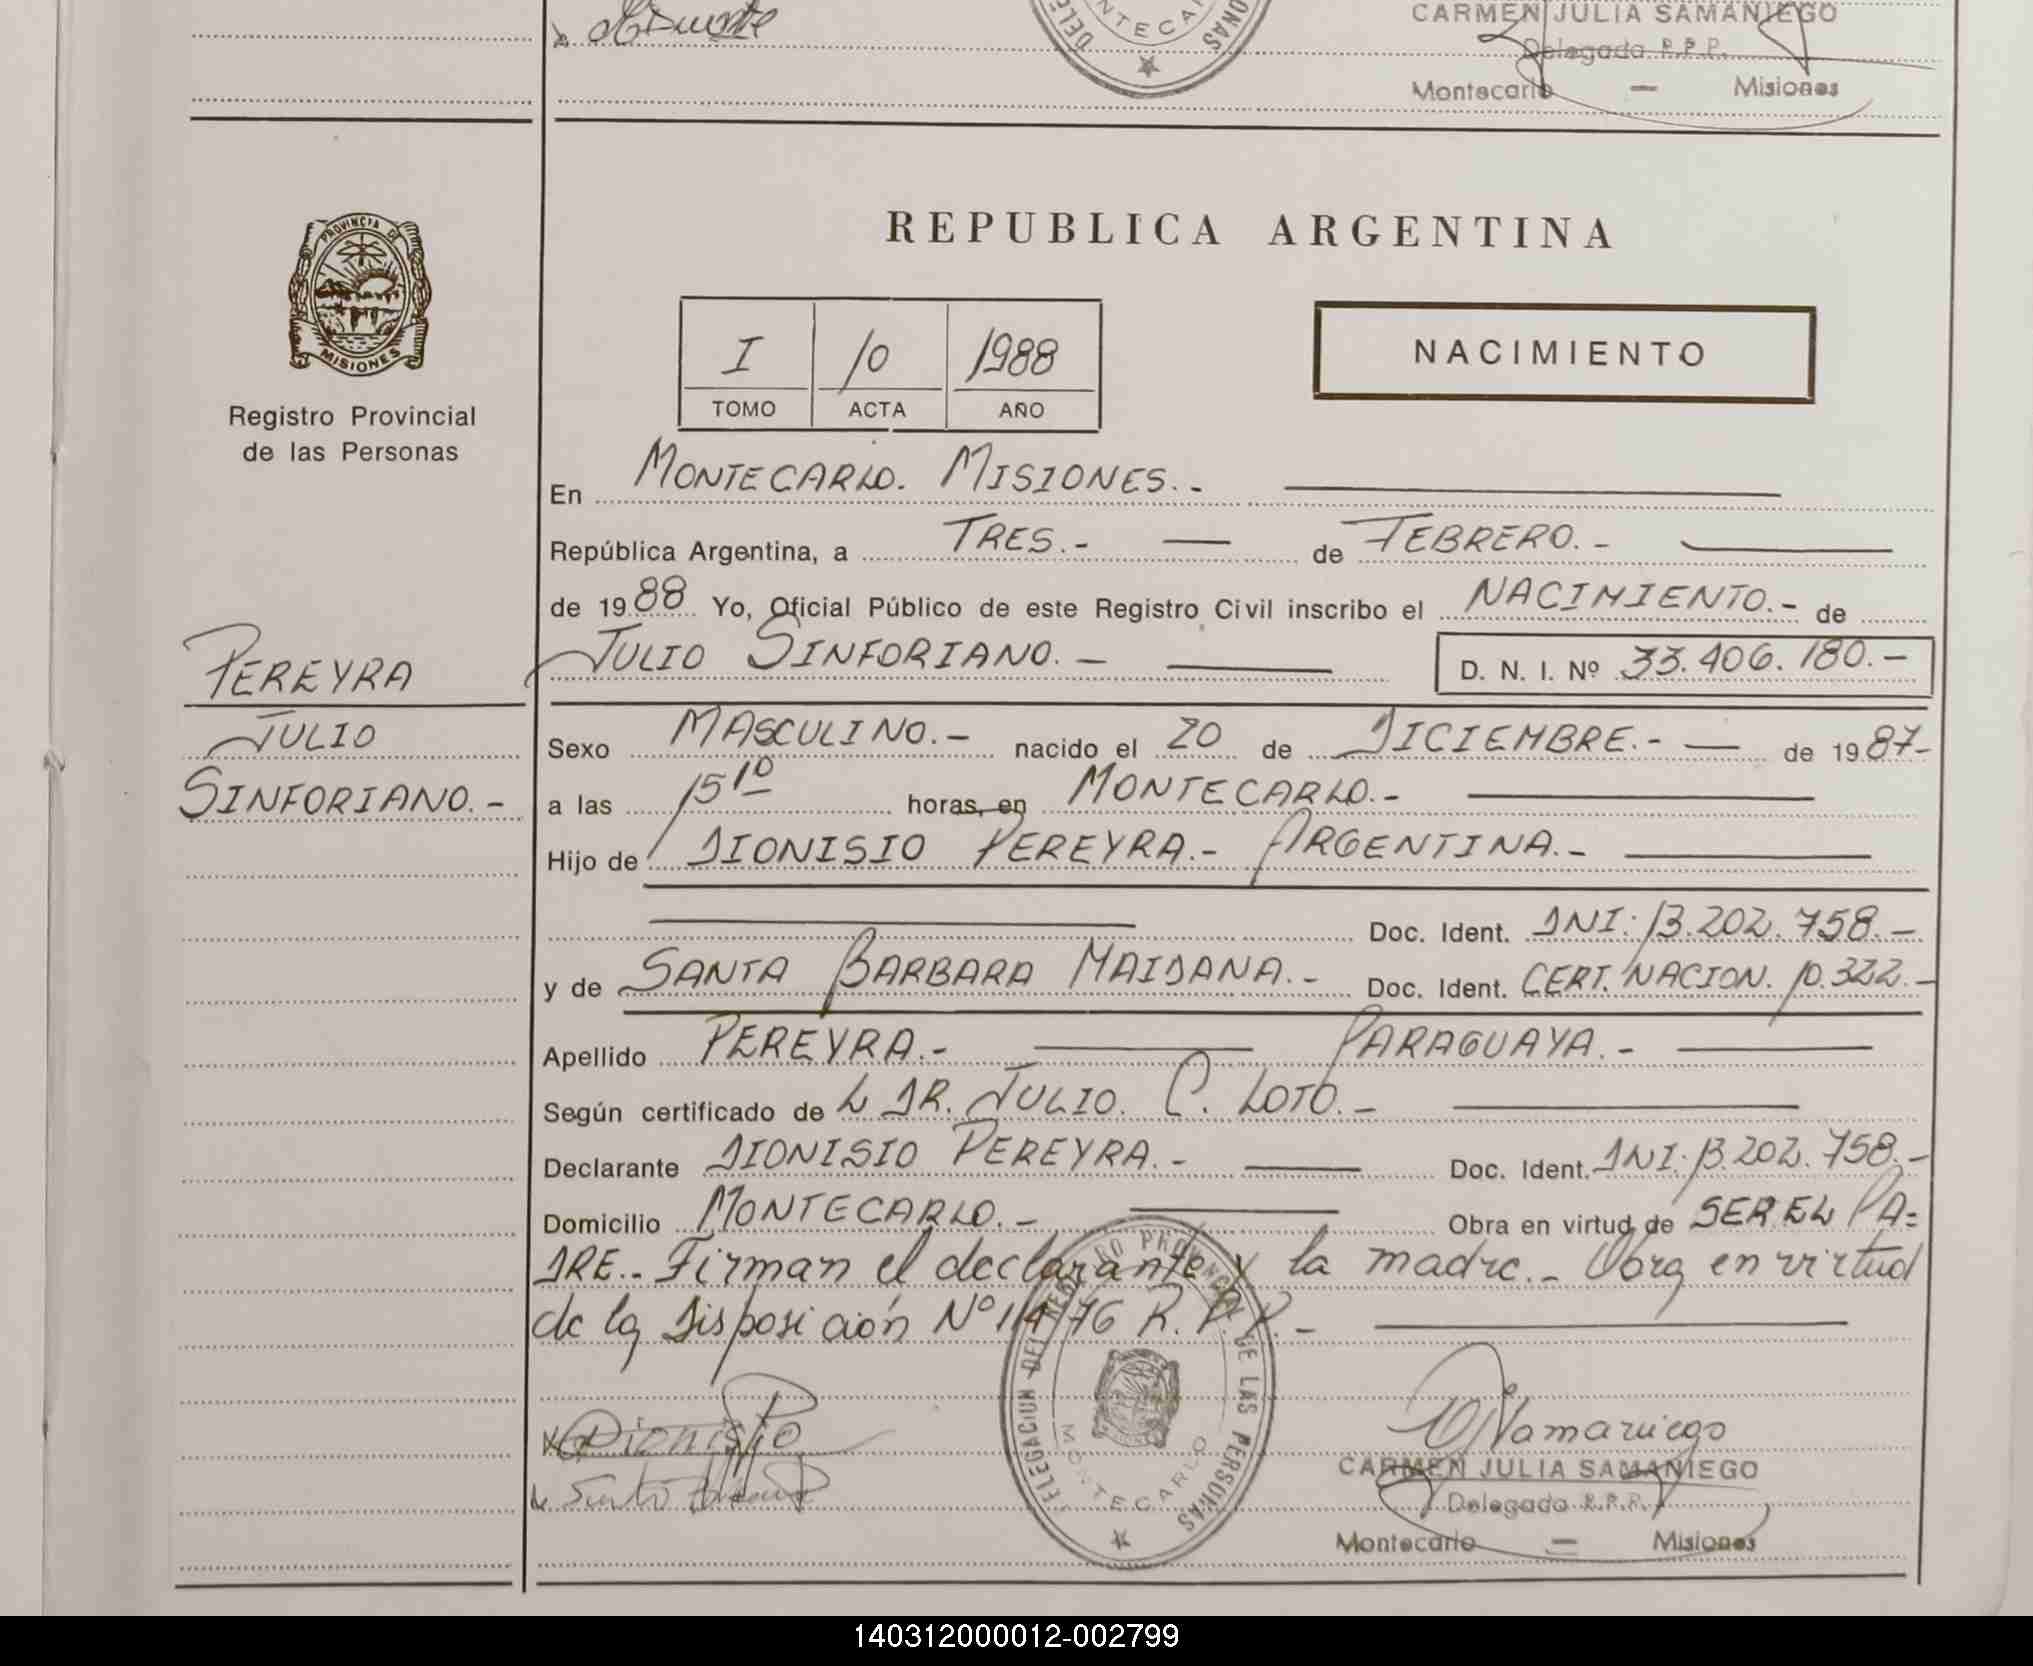 CARMEN JULIA SAMANIEGO
Delegada R.P.P.
Montecarlo — Misiones
PROVINCIA DE
MISIONES
Registro Provincial
de las Personas
REPUBLICA ARGENTINA
I 10 1988
TOMO ACTA AÑO
NACIMIENTO
En MONTECARLO. MISIONES.-
República Argentina, a TRES.- de FEBRERO.-
de 1988 Yo, Oficial Público de este Registro Civil inscribo el NACIMIENTO.- de
JULIO SINFORIANO.- D. N. I. Nº 33.406.180.-
PEREYRA
JULIO
SINFORIANO.-
Sexo MASCULINO.- nacido el 20 de DICIEMBRE.- de 1987-
a las 15 10 horas, en MONTECARLO.-
Hijo de DIONISIO PEREYRA.- ARGENTINA.-
Doc. Ident. DNI: 13.202.758.-
y de SANTA BARBARA MAIDANA.- Doc. Ident. CERT. NACION. 10.322.-
Apellido PEREYRA.- PARAGUAYA.-
Según certificado de L DR. JULIO. C. LOTO.-
Declarante DIONISIO PEREYRA.- Doc. Ident. DNI: 13.202.758.-
Domicilio MONTECARLO.- Obra en virtud de SER EL PA=
DRE.- Firman el declarante y la madre.- Obra en virtud
de la Disposición Nº 14/76 R.P.P.-
DELEGACION DEL REGISTRO PROVINCIAL DE LAS PERSONAS
MONTECARLO
Dionisio
Samaniego
CARMEN JULIA SAMANIEGO
Delegada R.P.P.
Montecarlo — Misiones
140312000012-002799